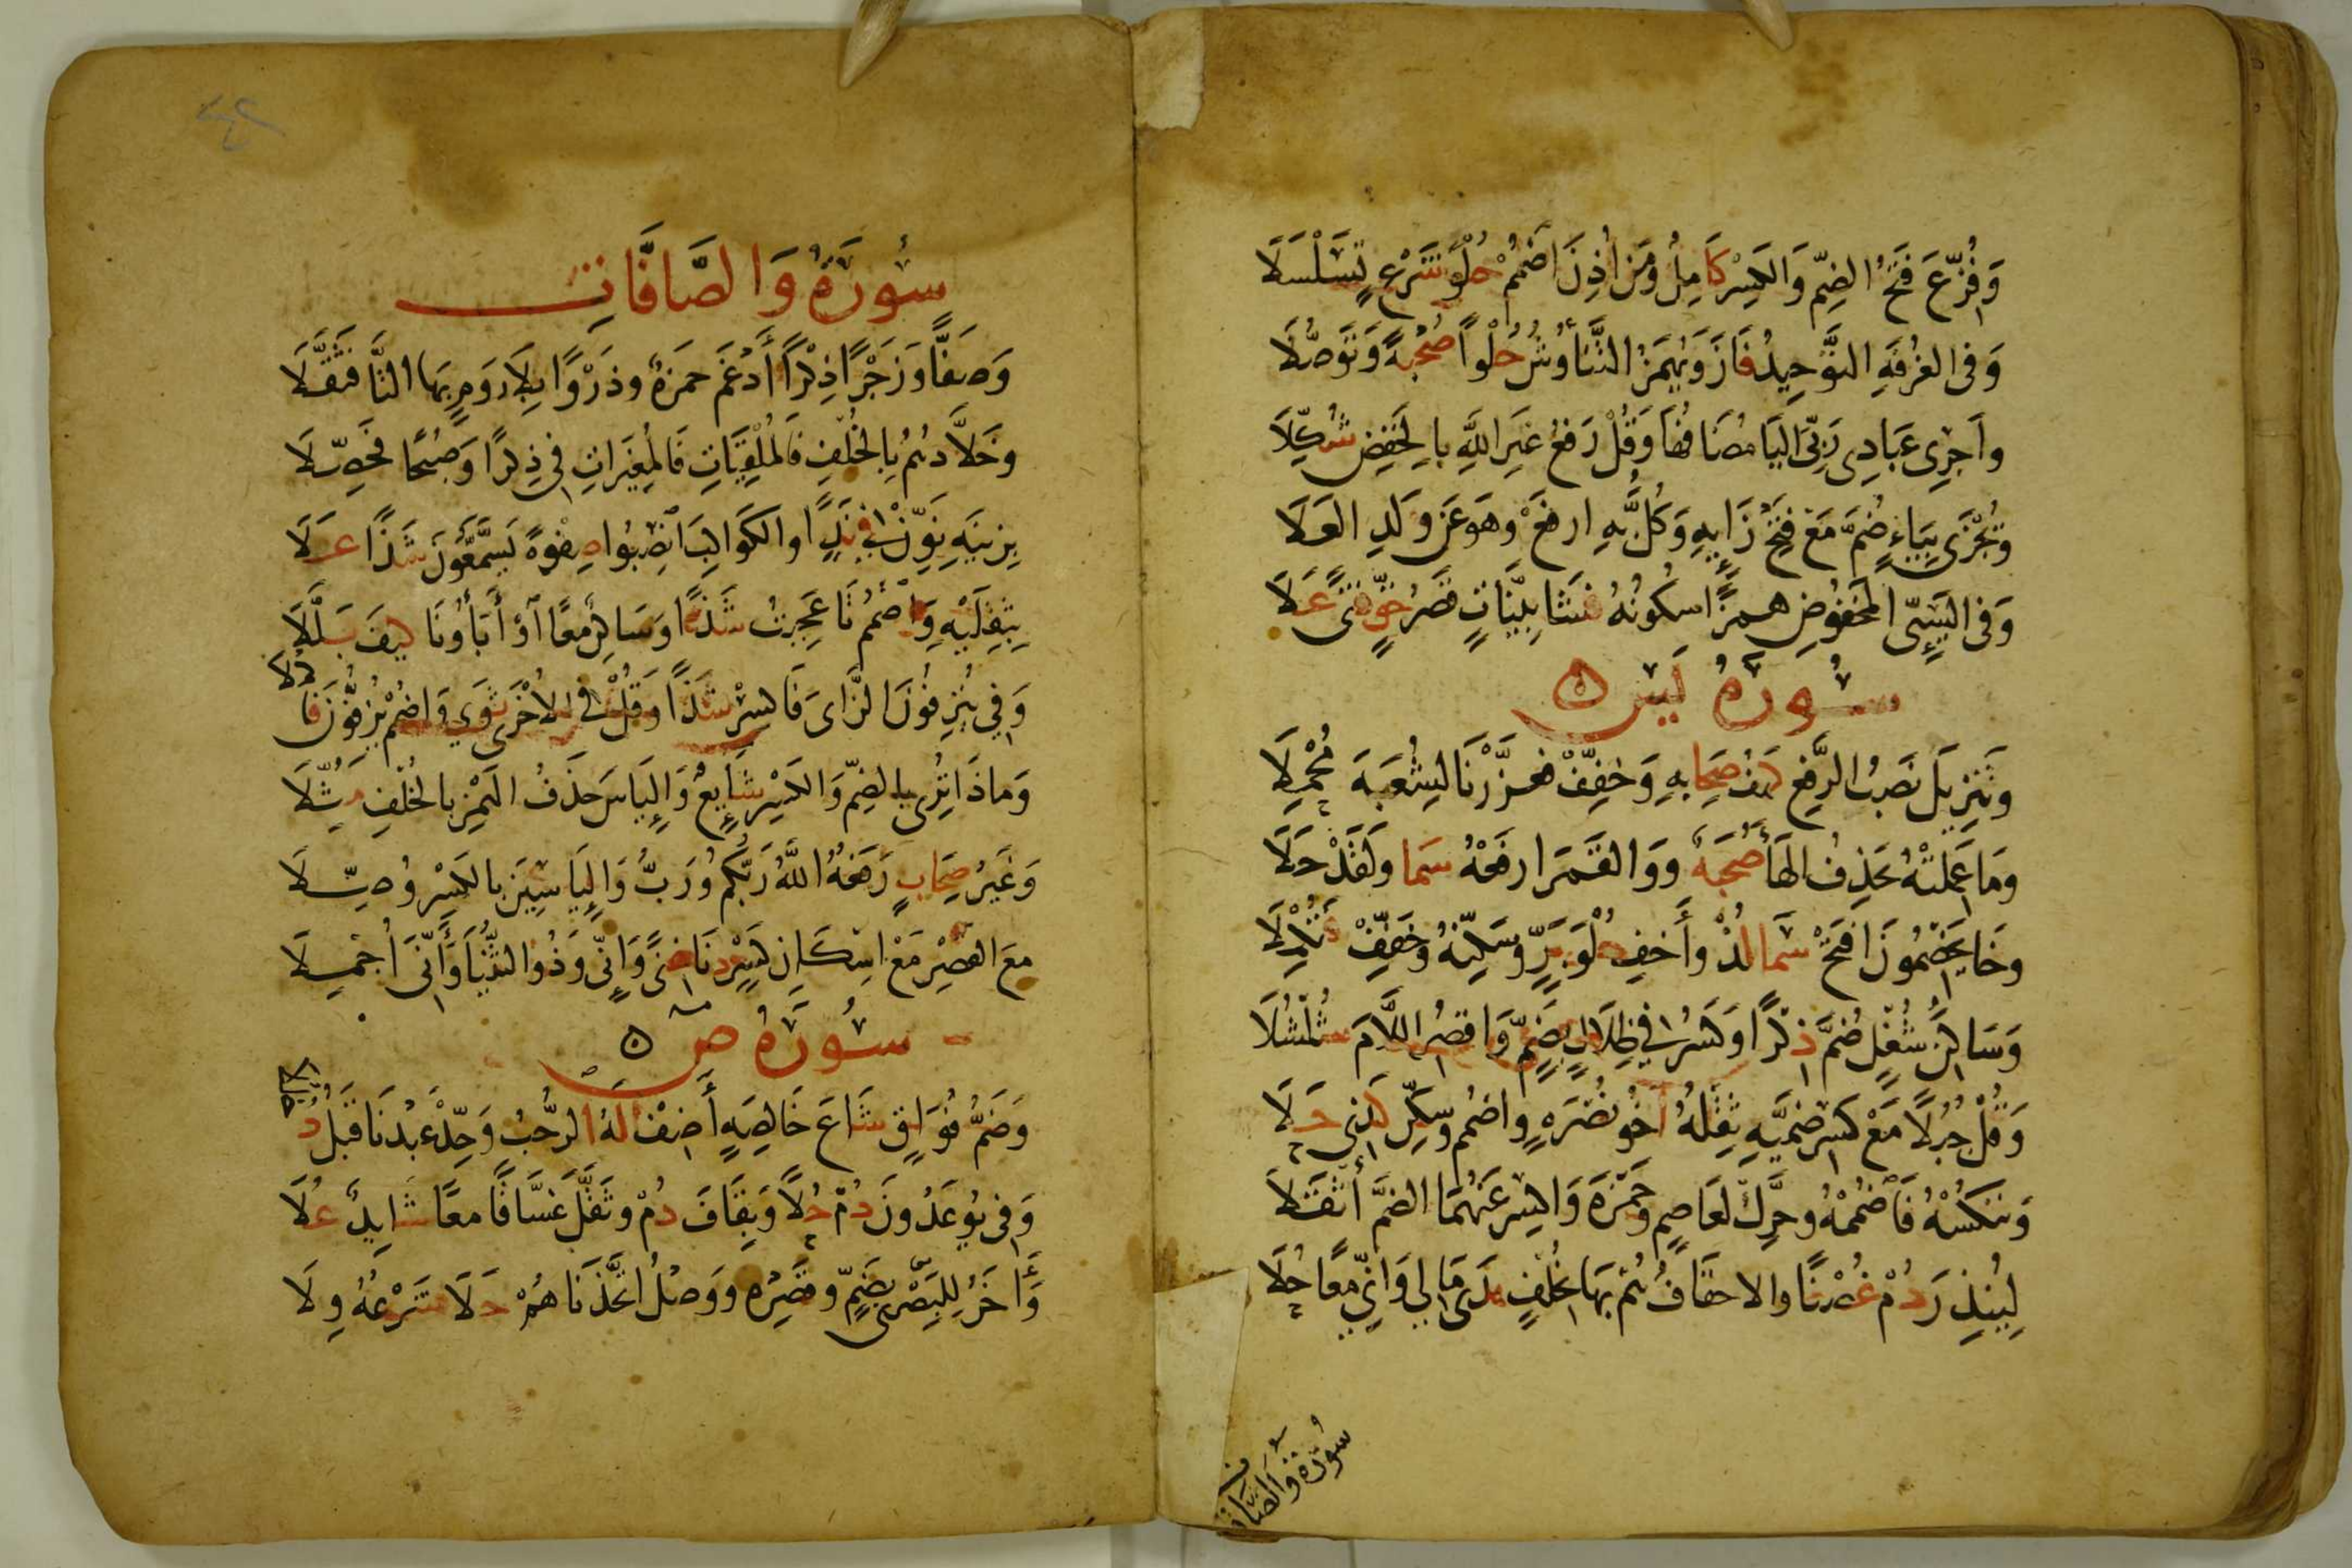 وَفُزِّعَ فَتْحُ الضَمِّ وَالكَسْرِ كَامِلٌ وَمَن أُذِنَ اضْمُمْ حُلْوَ شَرْعٍ تَسَلْسَلَا
وَفِى الغُرْفَةِ التَّوْحِيدُ فَازَ وَيُهْمَزُ التَّنَاؤُشُ حُلْوًا صُحْبَةً وَتَوَصُّلَا
وأَجْرِى عِبَادِى رَبِّىَ اليَا مُضَافُهَا وَقُلْ رَفْعُ غَيْرُ اللَّهِ بِالخَفْضِ شُكِّلَا
وَيُجْزَى بِيَاءٍ ضُمَّ مَعْ فَتْحِ زَايِهِ وَكُلُّ بِهِ ارْفَعْ وهوَ عَن وَلَدِ العَلَا
وَفِى السَيِّئِ المَخْفُوضِ همزًا سُكُونُهُ فَشَا بَيِّنَاتٍ قَصْرُ حَقٍّ فَتًى عَلَا
سُورَةُ يَس
وَتَنْزِيلَ نَصْبُ الرَّفْعِ كَهْفُ صِحَابِهِ وَخَفِّفْ فَعَزَّزْنَا لِشُعْبَةَ مُحْمِلَا
وَمَا عَمِلَتْهُ يَحْذِفُ الهَا صُحْبَةٌ وَوَالقَمَرَ ارْفَعْهُ سَمَا وَلَقَدْ حَلَا
وخَا يَخْصِمُونَ افْتَحْ سَمَا لُذْ وأَخْفِ حُلْوَ بَرٍّ وَسَكِّنْهُ وَخَفِّفْ فَتُكْمِلَا
وَسَاكِنَ شُغْلٍ ضُمَّ ذِكْرًا وَكَسْرُ فِى ظِلَالٍ بِضَمٍّ وَاقْصُرِ اللَّامَ شُلْشُلَا
وَقُلْ جُبُلًا مَعْ كَسْرِ ضَمَّيْهِ ثِقْلُهُ أَخُو نُصْرَةٍ واضْمُم وَسَكِّن كَذِى حَلَا
وَنَنْكُسُهُ فَاضْمُمْهُ وحَرِّكْ لعَاصِمٍ وَحَمْزَةَ وَاكْسِرْ عَنْهُمَا الضَمَّ أَثْقَلَا
لِيُنْذِرَ دُمْ غُصْنًا والاحقَافُ هُمْ بِهَا بِخُلْفٍ هَدَى مَالِى وَإِنِّى مَعًا حُلَا
سُورَة وَالصَّافَّات
سُورَةُ وَالصَّافَّاتِ
وَصَفًّا وَزَجْرًا ذِكْرًا أَدْغَمَ حَمزَةٌ وذَرْوًا بِلَا رَوْمٍ بِهَا التَّا فَثَقَّلَا
وخَلَّادُهُمْ بِالخُلْفِ فَالمُلْقِيَاتِ فَالمُغِيرَاتِ فِى ذِكْرًا وَصُبْحًا فَحَصِّلَا
بِزِينَةِ نَوِّنْ فِى نَدٍ والكَوَاكِبَ انْصِبُوا صِفْوَةً يَسَّمَّعُونَ شَذًا عَلَا
بِثِقْلَيْهِ وَاضْمُم تَا عَجِبْتُ شَذًا وَسَاكِنٌ مَعًا أَوْ أَبَاؤُنَا كيفَ بَلَّلَا
وَفِى يُنْزِفُونَ الزَّاىَ فَاكسِرْ شَذًا وَقُلْ فِى الاُخْرَى ثَوَى وَاضْمُمْ يَزِفُّونَ فَاكْمُلَا
وَمَاذَا تُرِى بِالضَمِّ وَالكَسْرِ شَايِعٌ وَإِلْيَاسَ حَذْفُ الهَمْزِ بِالخُلْفِ مُثِّلَا
وَغَيْرُ صِحَابٍ رَفْعُهُ اللَّهُ رَبُّكُمْ وَرَبُّ وَإِلْيَاسِينَ بِالكَسْرِ وُصِّلَا
مَعَ القَصْرِ مَعْ اسْكَانِ كَسْرٍ دَنَا غِنًى وَإِنِّى وَذُو الثُّنْيَا وَأَنِّى أُجْمِلَا
سُورَةُ ص
وَضَمُّ فُوَاقٍ شَاعَ خَالِصَةٍ أَضِفْ لَهُ الرُّحْبُ وَحِّدْ عَبْدَنَا قَبْلُ دُخْلُلَا
وَفِى يُوعَدُونَ دُمْ حُلًا وَبِقَافَ دُمْ وَثَقَّلَ غَسَّاقًا مَعًا شَايِدٌ عُلَا
وَأُخَرُ لِلبَصْرِى بِضَمٍّ وَقَصْرِهِ وَوَصْلُ اتَّخَذْنَاهُمْ حَلَا شَرْعُهُ وِلَا